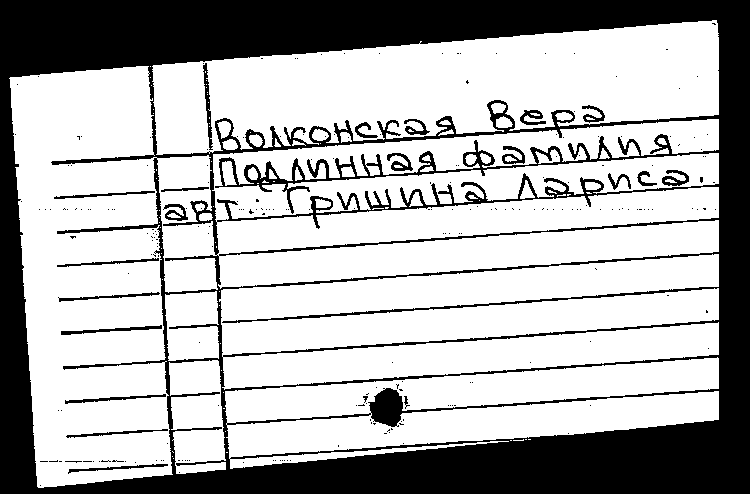 Волконская Вера
Подлинная фамилия
авт.: Гришина Лариса.